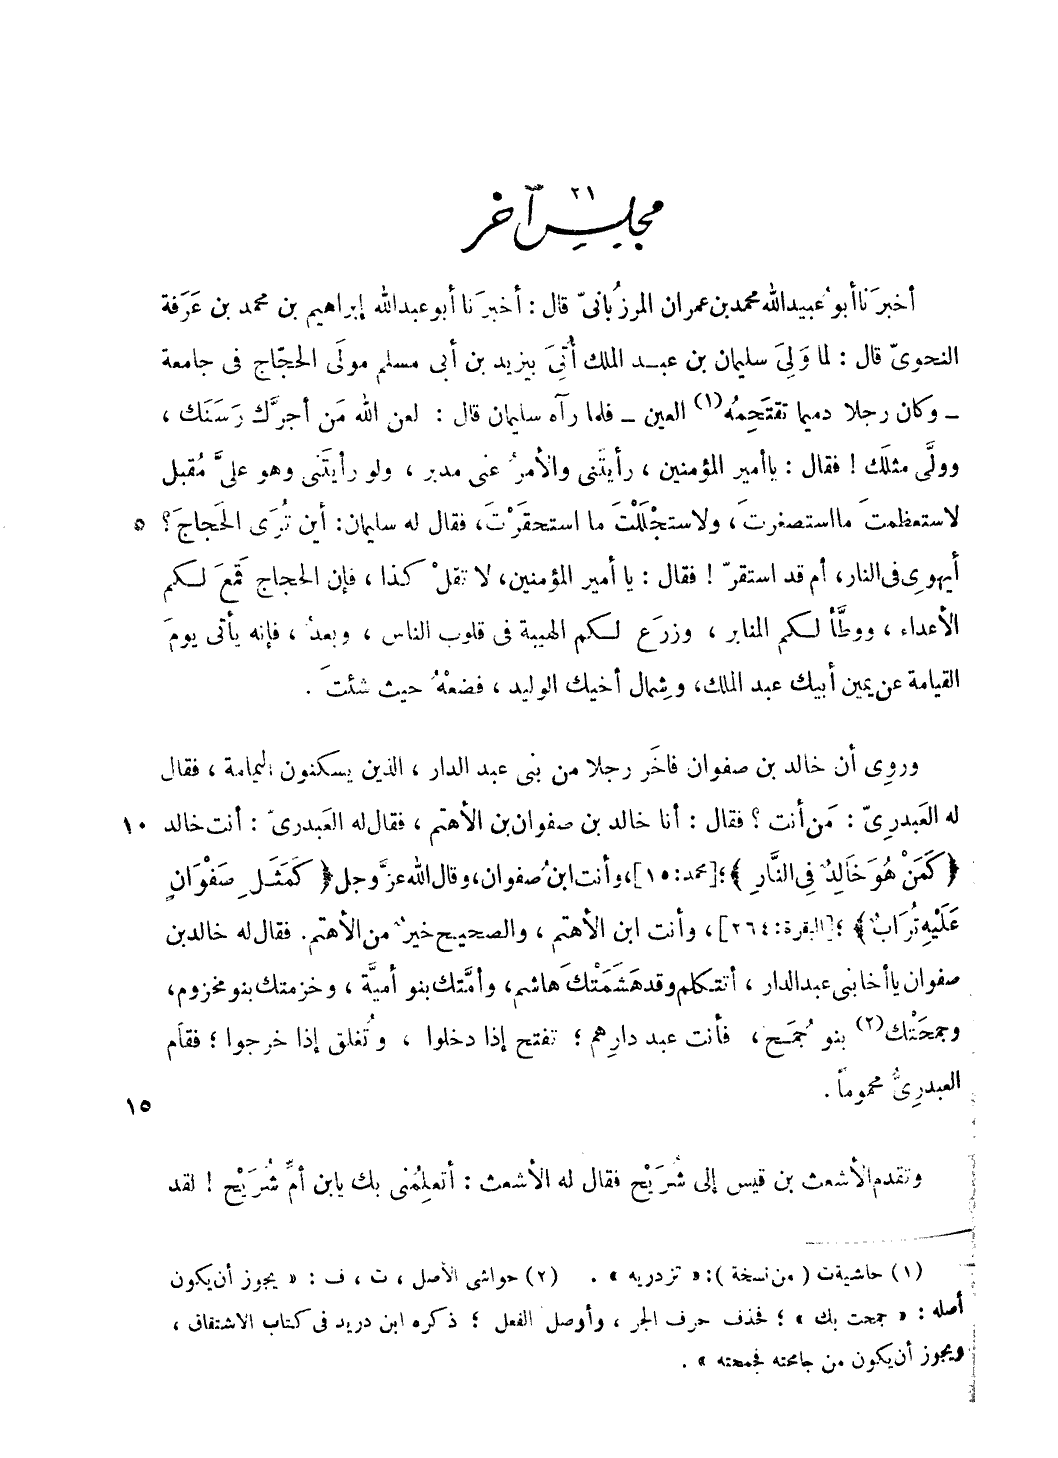 ٢١
مجلس آخر
أخبرَنا أبو عُبيد الله محمد بن عمران المرزُبانىّ قال : أخبرَنا أبو عبد الله إبراهيم بن محمد بن عَرَفة
النحوىّ قال : لما وَلِىَ سليمان بن عبد الملك أُتِىَ بيزيد بن أبى مسلم مولَى الحجّاج فى جامعة
ـ وكان رجلا دميما تقتَحِمُه(١) العين ـ فلما رآه سليمان قال : لعن الله مَن أجرَّك رَسَنَك ،
وولَّى مثلَك ! فقال : يا أمير المؤمنين ، رأيتَنى والأمرُ عنى مدبر ، ولو رأيتَنى وهو علىَّ مُقبل
لاستعظمتَ ما استصغرتَ ، ولاستجْلَلْتَ ما استحقَرْتَ، فقال له سليمان : أين تُرَى الحَجاجَ ؟ ٥
أيهوِى فى النار، أم قد استقرّ ! فقال : يا أمير المؤمنين، لا تقلْ كذا ، فإن الحجاج قَمَعَ لكم
الأعداء ، ووطَّأ لكم المنابر ، وزرَع لكم الهيبة فى قلوب الناس ، وبعدُ ، فإنه يأتى يومَ
القيامة عن يمين أبيك عبد الملك، وشِمال أخيك الوليد ، فضعْهُ حيث شئتَ .
وروِى أن خالد بن صفوان فاخَر رجلا من بنى عبد الدار ، الذين يسكنون اليمامة ، فقال
له العَبدرِىّ : مَن أنت ؟ فقال : أنا خالد بن صفوان بن الأهتم ، فقال له العَبدرىّ : أنت خالد ١٠
﴿ كَمَنْ هُوَ خَالِدٌ فِى النَّارِ ﴾؛ [محمد: ١٥]، وأنت ابنُ صفوان، وقال الله عزَّ وجل ﴿ كَمَثَلِ صَفْوَانٍ
عَلَيْهِ تُرَابٌ ﴾ ؛ [البقرة: ٢٦٤] ، وأنت ابن الأهتم ، والصحيح خيرٌ من الأهتم. فقال له خالد بن
صفوان يا أخا بنى عبد الدار ، أتتكلم وقد هَشَمَتْكَ هاشم، وأمَّتك بنو أميَّة ، وخزمتك بنو مخزوم،
وجمحَتْك(٢) بنو جُمَح ، فأنت عبد دارِهم ؛ تفتح إذا دخلوا ، وتُغلق إذا خرجوا ؛ فقام
العبدرِىُّ محموماً . ١٥
وتقدم الأشعث بن قيس إلى شُرَيْح فقال له الأشعث : أتعلِمُنى بك يابن أمِّ شُرَيْح ! لقد
(١) حاشية ت ( من نسخة ) : « تزدريه » . (٢) حواشى الأصل ، ت ، ف : « يجوز أن يكون
أصله : « جمحت بك » ؛ فحذف حرف الجر ، وأوصل الفعل ؛ ذكره ابن دريد فى كتاب الاشتقاق ،
ويجوز أن يكون من جامحته فجمحته » .